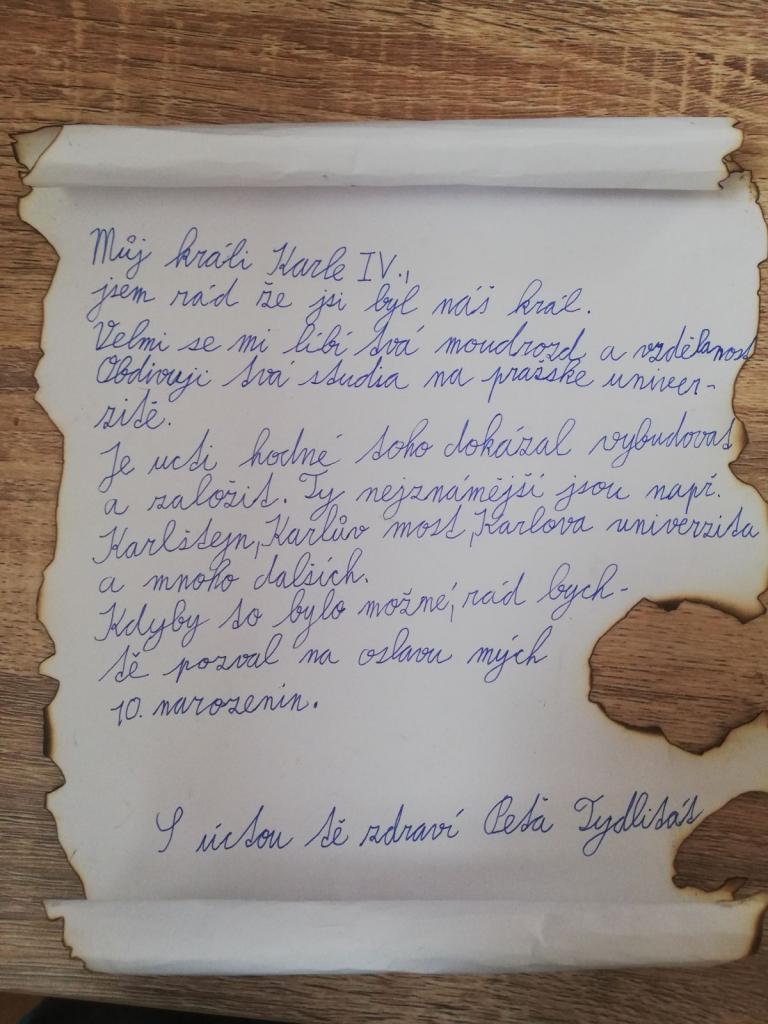 Můj králi Karle IV.,
jsem rád že jsi byl náš král.
Velmi se mi líbí tvá moudrozd a vzdělanost
Obdivuji tvá studia na pražské univer-
zitě.
Je ucti hodné toho dokázal vybudovat
a založit. Ty nejznámější jsou např.
Karlštejn, Karlův most, Karlova univerzita
a mnoho dalších.
Kdyby to bylo možné, rád bych-
tě pozval na oslavu mých
10. narozenin.
S úctou tě zdraví Peťa Tydlitát